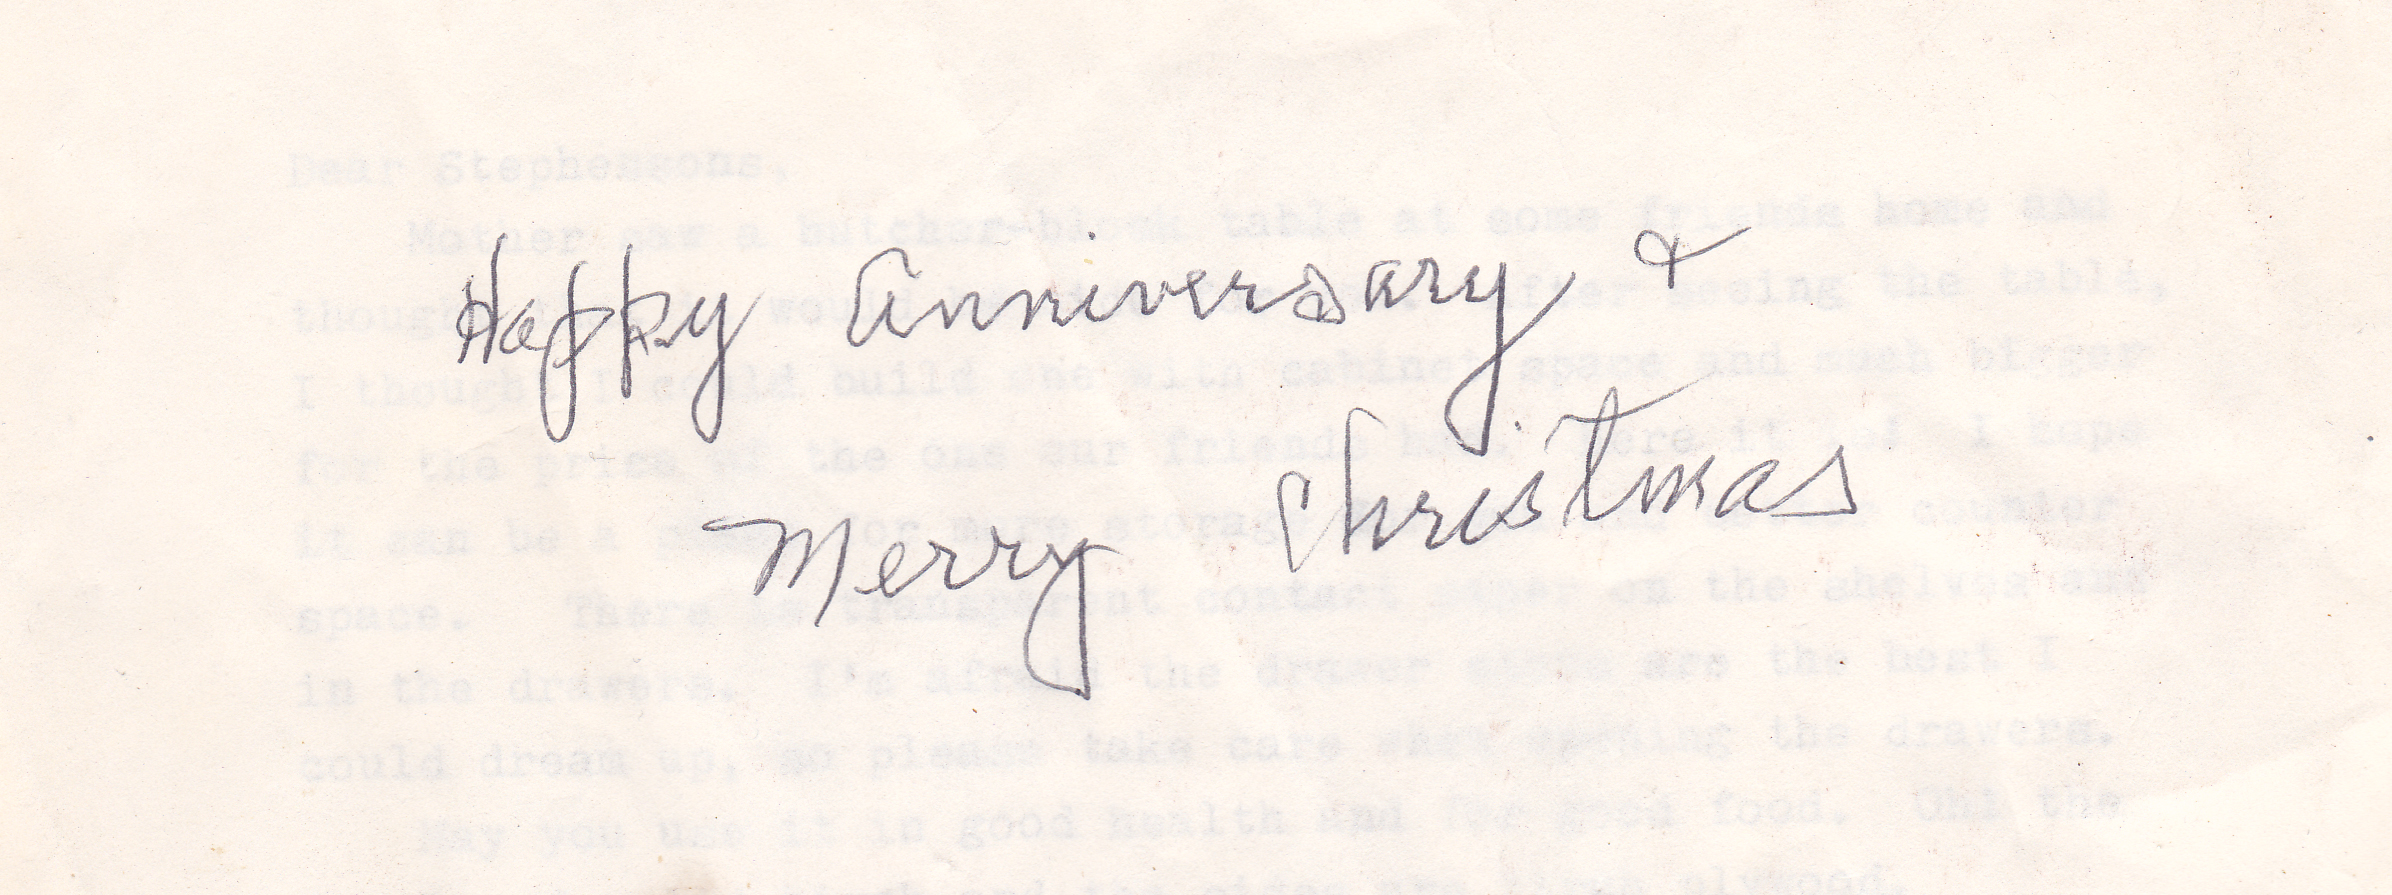 Dear Stephensons,
Mother saw a butcher-block table at some friends home and
though would After seeing the table,
I thought I could build one with cabinet space and much bigger
for the price of the one our friends had. Here it is! I hope
it can be a for more storage counter
space. There is transparent contact paper on the shelves and
in the drawers. I'm afraid the drawer are the best I
could dream up, so please take care when opening the drawers.
May you use it in good health and for good food. Oh! the
and the sides are plywood.
Happy Anniversary &
Merry Christmas